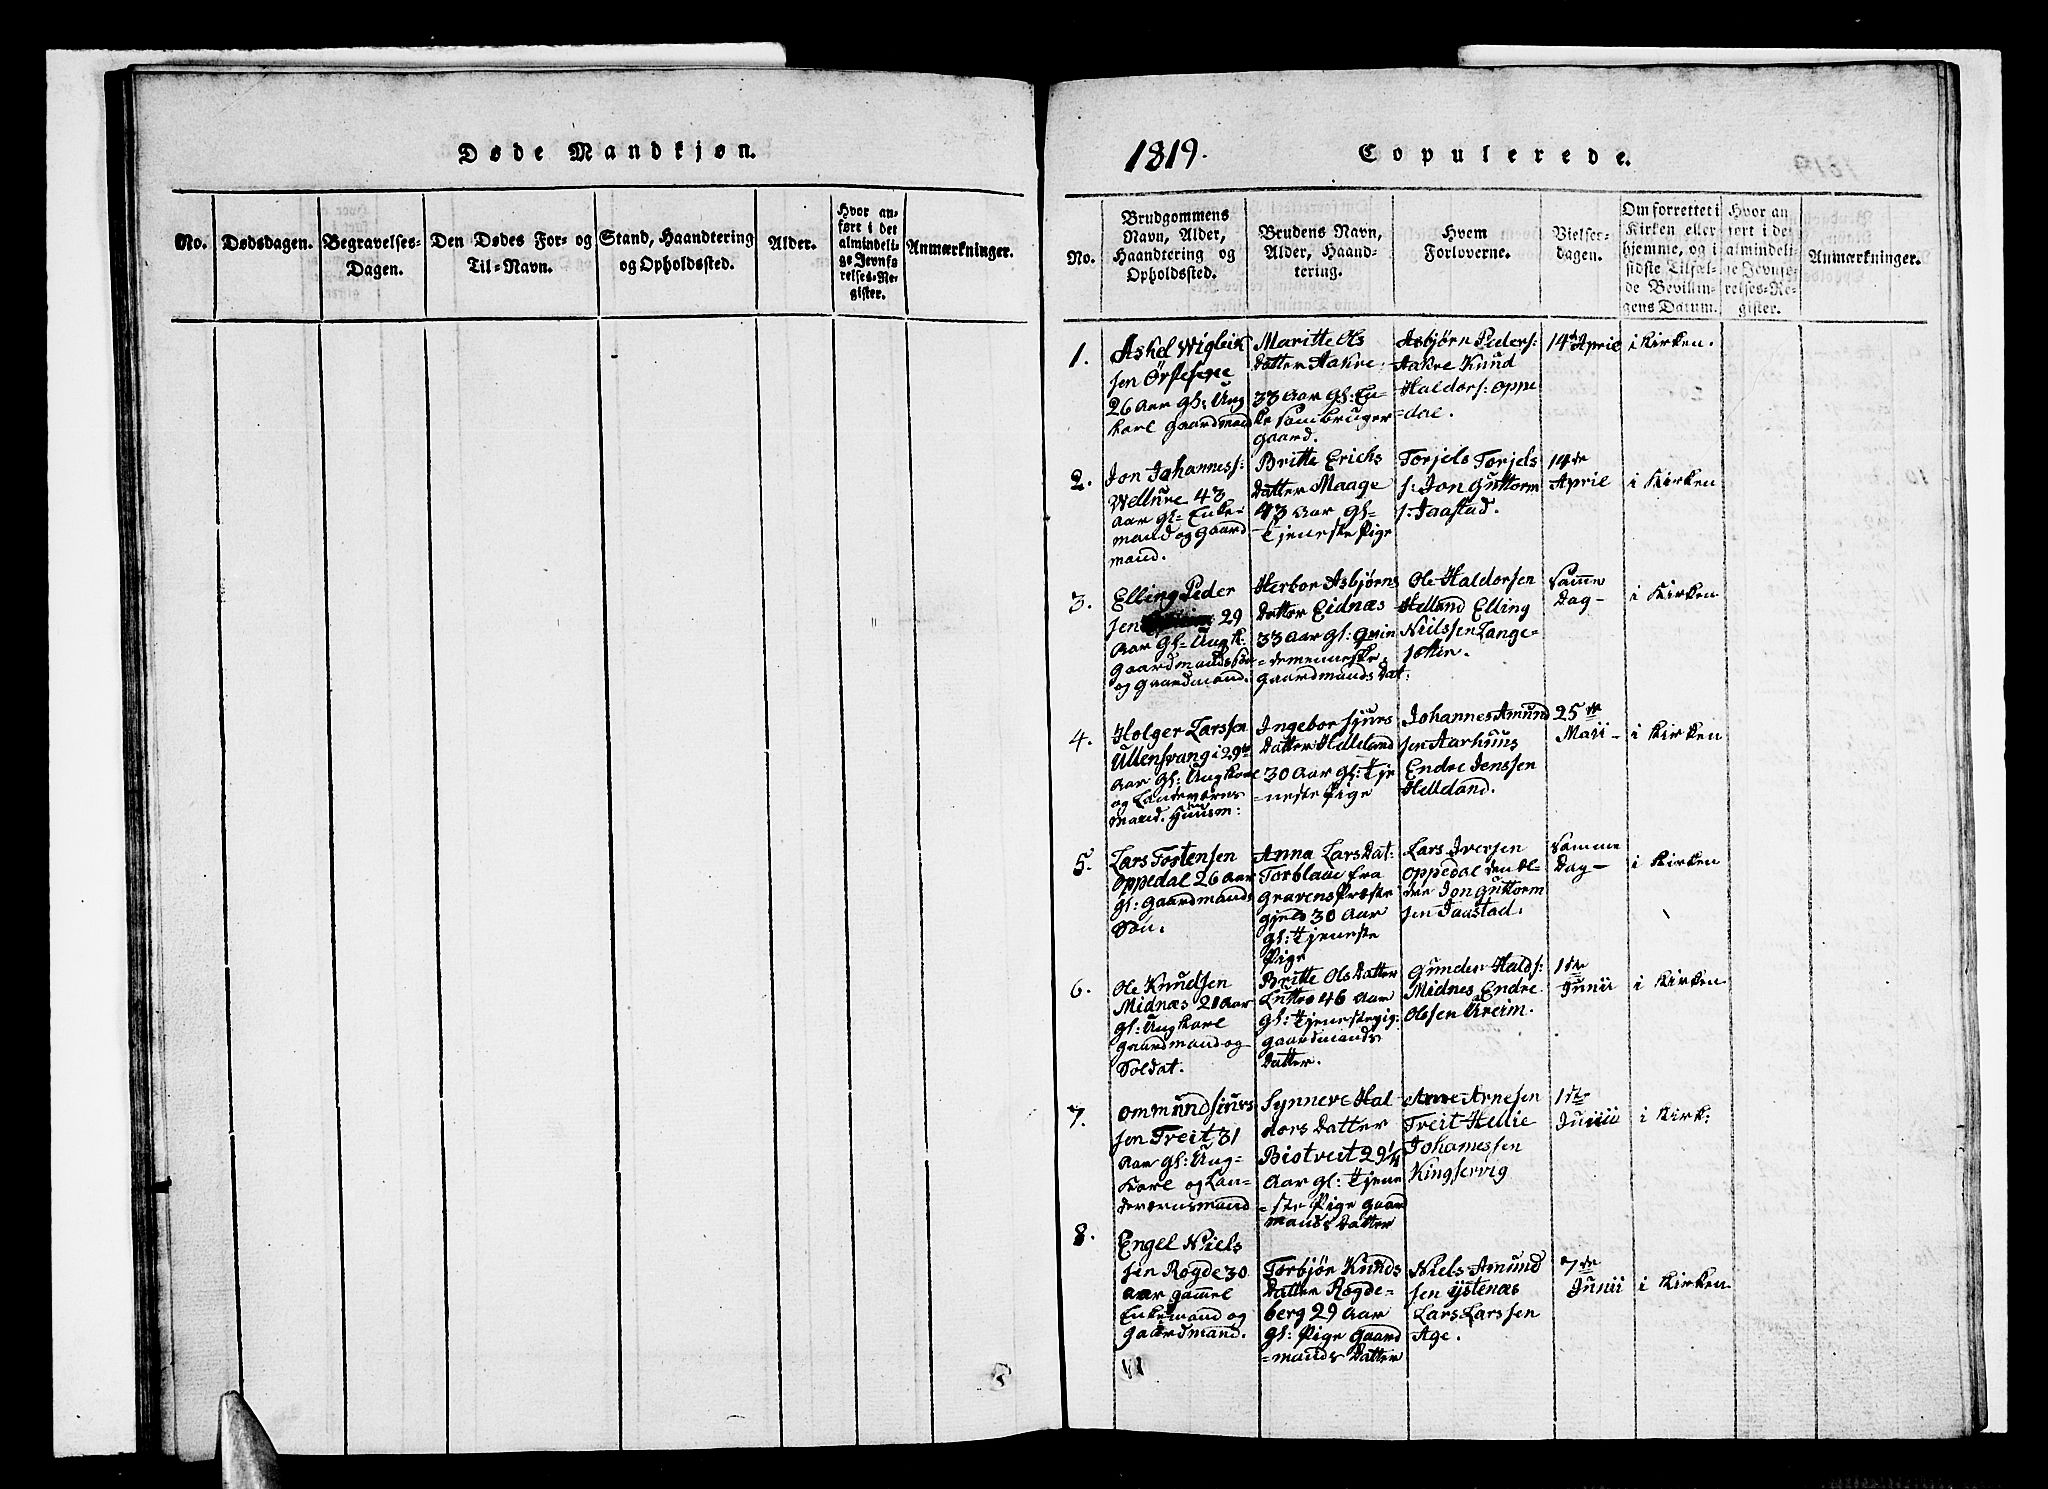 Døde Mandkjøn.
No.
Dødsdagen.
Begravelses-
Dagen.
Den Dødes For- og
Til-Navn.
Stand, Haandtering
og Opholdssted.
Alder.
Hvor an-
ført i det
almindeli-
ge Jevnfø-
relses-Re-
gister.
Anmærkninger.
1819.
Copulerede.
No.
Brudgommens
Navn, Alder,
Haandtering og
Opholdssted.
Brudens Navn,
Alder, Haand-
tering.
Hvem
Forloverne.
Vielses-
dagen.
Om forrettet i
Kirken eller
hjemme, og i
sidste Tilfæl-
de Bevillin-
gens Datum.
Hvor an
ført i det
almindeli-
ge Jevnfø-
relses-Re-
gister.
Anmærkninger.
1.
Askel Wigleik
sen
26 Aar gl: Ung
karl Gaardmand
Maritte Ols
Datter Aakre
33 Aar gl: En-
ke som bruger
gaard.
Asbjørn Peders:
Aakre Knud
Haldors: Oppe
=dal.
14de April
i Kirken.
2.
Jon Johanness:
Wellure 43
Aar gl= Enke-
mand og Gaard
mand.
Britte Erichs
Datter Maage
43 Aar gl=
Tjeneste Pige
Torjels Torjels
s: Jon Guttorm
s: Jaastad.
14de
April
i Kirken
3.
Elling Peder
sen 29
Aar gl= Ungk:
Gaardmands søn
og Gaardmand.
Herbor Asbjørns
Datter Eidnæs
33 Aar gl: Qvin
=demenneske
Gaardmands Dat:
Ole Haldorsen
Helland Elling
Nielssen Lange-
Samme
Dag-
i Kirken
4.
Holger Larssen
Ullensvang i 29de
Aar gl: Ungkarl
og Landeværns
mand. Huusm:
Ingebor Sjurs
Datter Helland
30 Aar gl: Tje
=neste Pige
Johannes Amund
sen Aarhuus
Endre Jenssen
Helleland.
25de
Maii-
i Kirken
5.
Lars Tostensen
Oppedal 26 Aar
gl: Gaardmands
Søn.
Anna Lars Dat-
Torblaae fra
Gravens Præste
gjeld 30 Aar
gl: Tjeneste
Pige
Lars Iversen
Oppedal den Æl-
dre Jon Guttorm
sen Jaastad.
Samme
Dag-
i Kirken
6.
Ole Knudsen
Midnæs 21 Aar
gl: Ungkarl
Gaardmand og
Soldat.
Britte Ols Datter
Lutro 46 Aar
gl: Tjenestepig:
Gaardmands
Datter.
Gunder Halds:
Midnes Endre
Olsen Ureim.
1ste
Junii
i Kirken
7.
Ommund Siurs
sen Treit 31
Aar gl: Ung=
karl og Lan-
deværnsmand
Synneve Hal
dors Datter
Bistveit 29¼
Aar gl: Tjene
=ste Pige Gaar
mands Datter
Arne Arnesen
Treit Hellie
Johanessen
Kingservig
1ste
Junii
i Kirk:
8.
Engel Niels
sen Rogde 30
Aar gammel
Enkemand og
Gaardmand.
Torbjør Knuds
Datter Rogde-
berg 29 Aar
gl: Pige Gaard
=mands Datter
Niels Amund
sen Ystenæs
Lars Larssen
Age.
7de
Junii
i Kirken